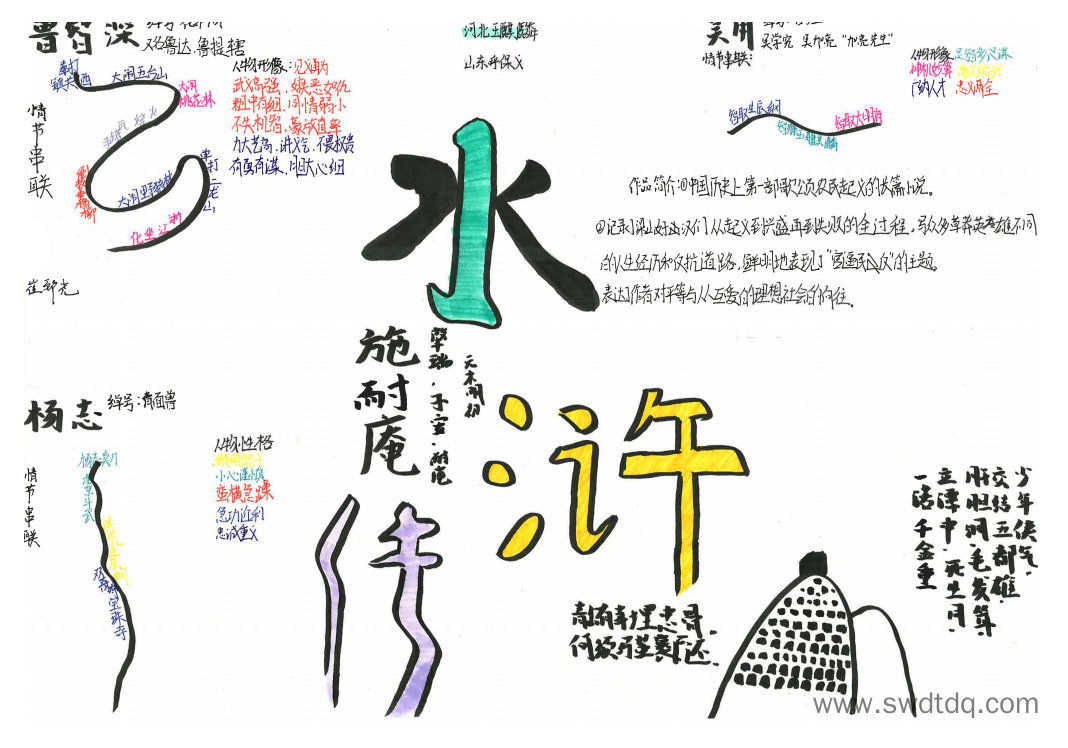 鲁智深
又名鲁达、鲁提辖
拳打
镇关西
大闹五台山
大闹
桃花林
情节串联
大闹野猪林
单打二龙山
坐化浙江
人物形像:见义勇为
武艺高强、嫉恶如仇
粗中有细、同情弱小
不失机智、豪放直率
力大艺高、讲义气、不畏权贵
有勇有谋、胆大心细
河北玉麒麟
山东呼保义
吴用
吴学究 吴加亮 "加亮先生"
情节串联:
智取生辰纲
智取大名府
人物形像:足智多谋
神机妙算
门纳人才 忠义两全
水
浒
传
作品简介:①中国历史上第一部歌颂农民起义的长篇小说。
②记录了梁山好汉们从起义到兴盛再到失败的全过程,以众多草莽英雄不同
的人生经历和反抗道路,鲜明地表现了"官逼民反"的主题。
表达了作者对平等与人互爱的理想社会的向往。
崔郭允
施耐庵
肇瑞、子安、耐庵
元末明初
杨志
绰号:青面兽
情节串联
杨志卖刀
宝珠寺
人物性格
小心谨慎
蛮横急躁
急功近利
忠诚重义
少年侠气,
交结五都雄,
肝胆洞,毛发耸,
立谭中,死生同,
一诺千金重
何须
www.swdtdq.com